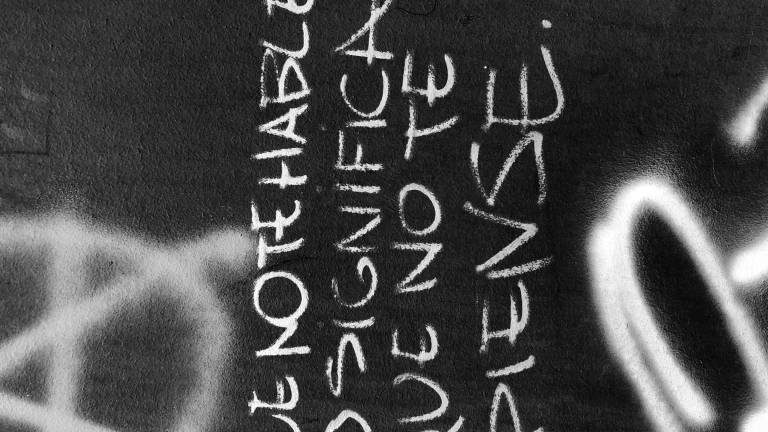 UE NO TE HABLE
O SIGNIFICA
QUE NO TE
PIENSE.